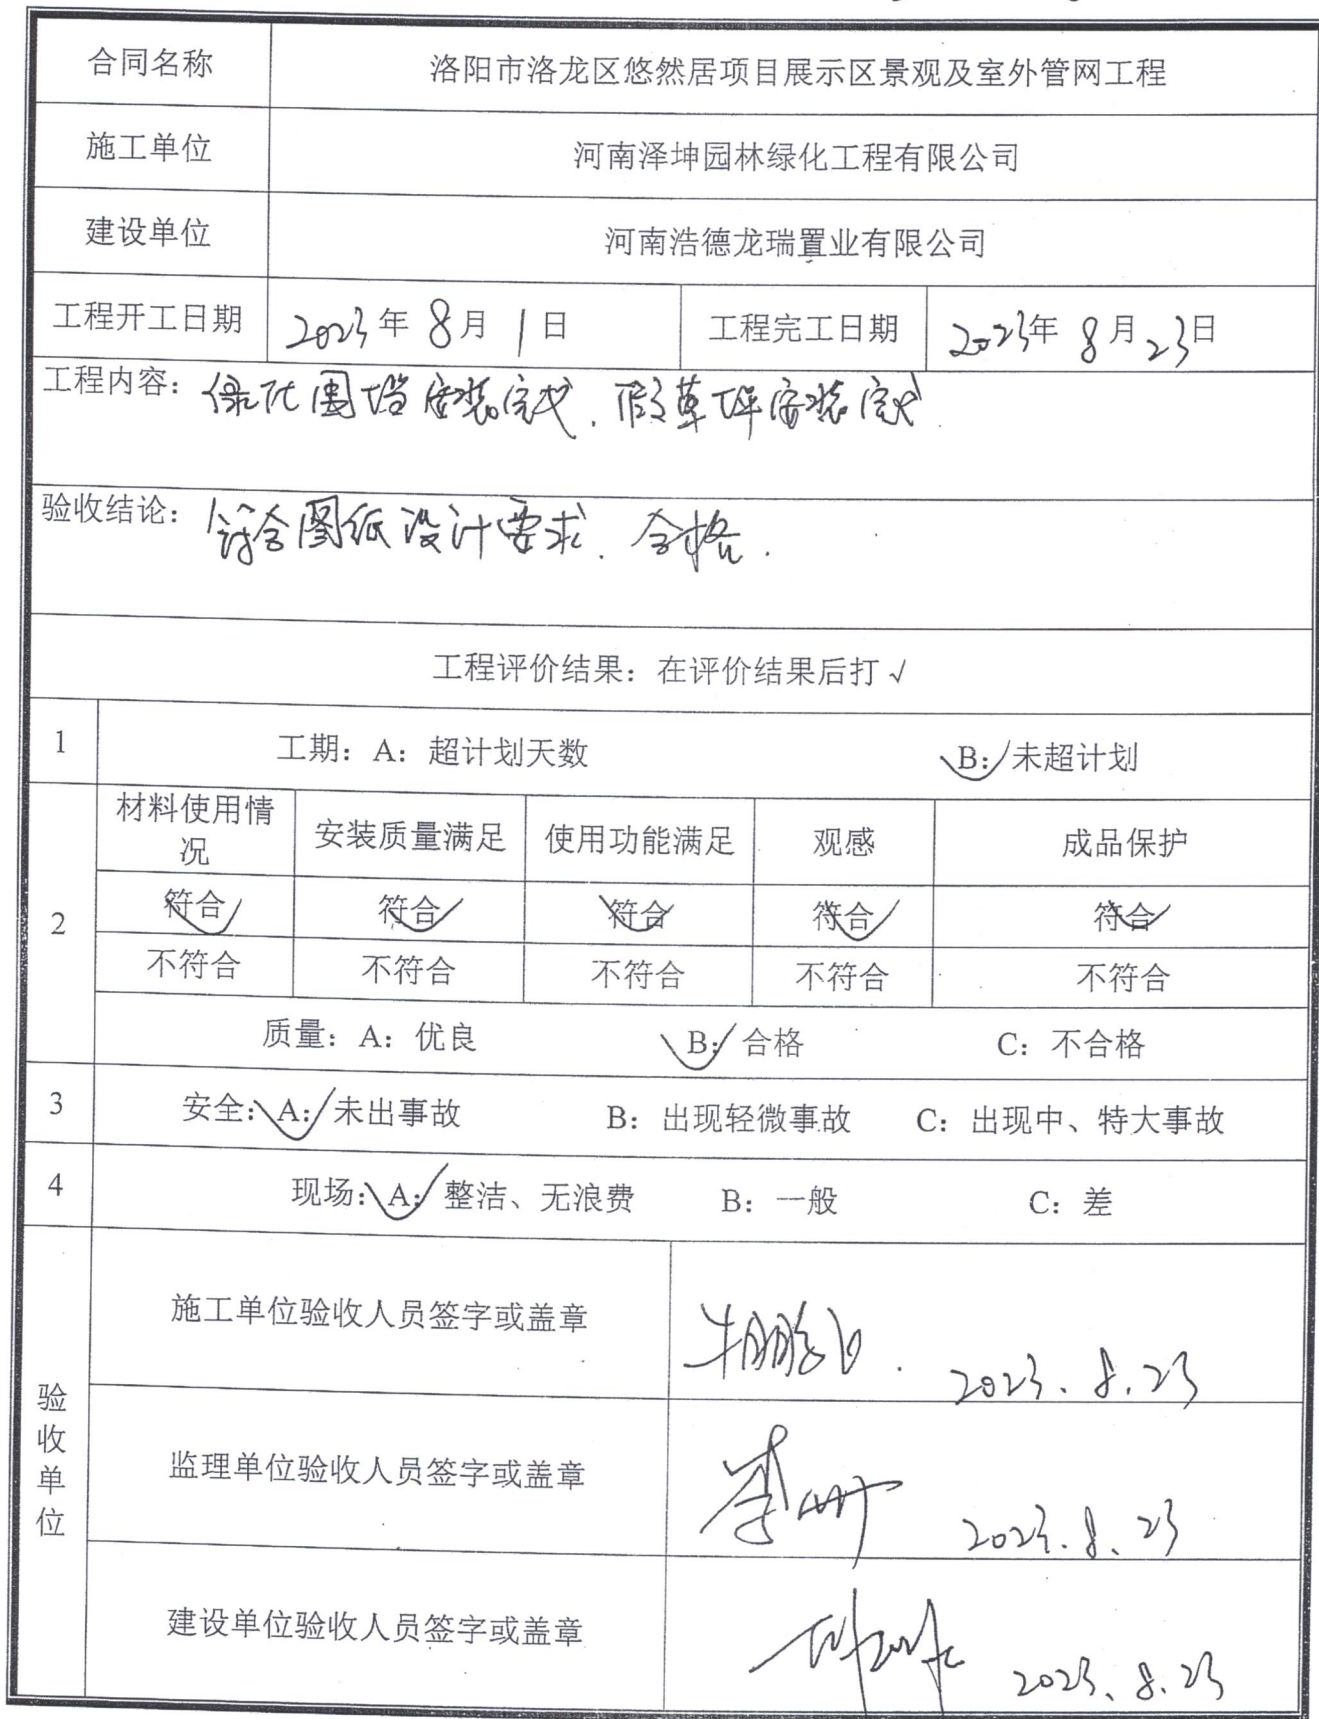 合同名称 洛阳市洛龙区悠然居项目展示区景观及室外管网工程
施工单位 河南泽坤园林绿化工程有限公司
建设单位 河南浩德龙瑞置业有限公司
工程开工日期 2023年 8月 1日 工程完工日期 2023年 8月23日
工程内容：绿化围挡安装完成．假草坪安装完成
验收结论：符合图纸设计要求．合格．
工程评价结果：在评价结果后打√
1 工期：A：超计划天数 B：√未超计划
材料使用情况 安装质量满足 使用功能满足 观感 成品保护
2 符合√ 符合√ 符合√ 符合√ 符合√
不符合 不符合 不符合 不符合 不符合
质量：A：优良 B：√合格 C：不合格
3 安全：A：√未出事故 B：出现轻微事故 C：出现中、特大事故
4 现场：A：√整洁、无浪费 B：一般 C：差
验收单位
施工单位验收人员签字或盖章 2023.8.23
监理单位验收人员签字或盖章 2023.8.23
建设单位验收人员签字或盖章 2023.8.23